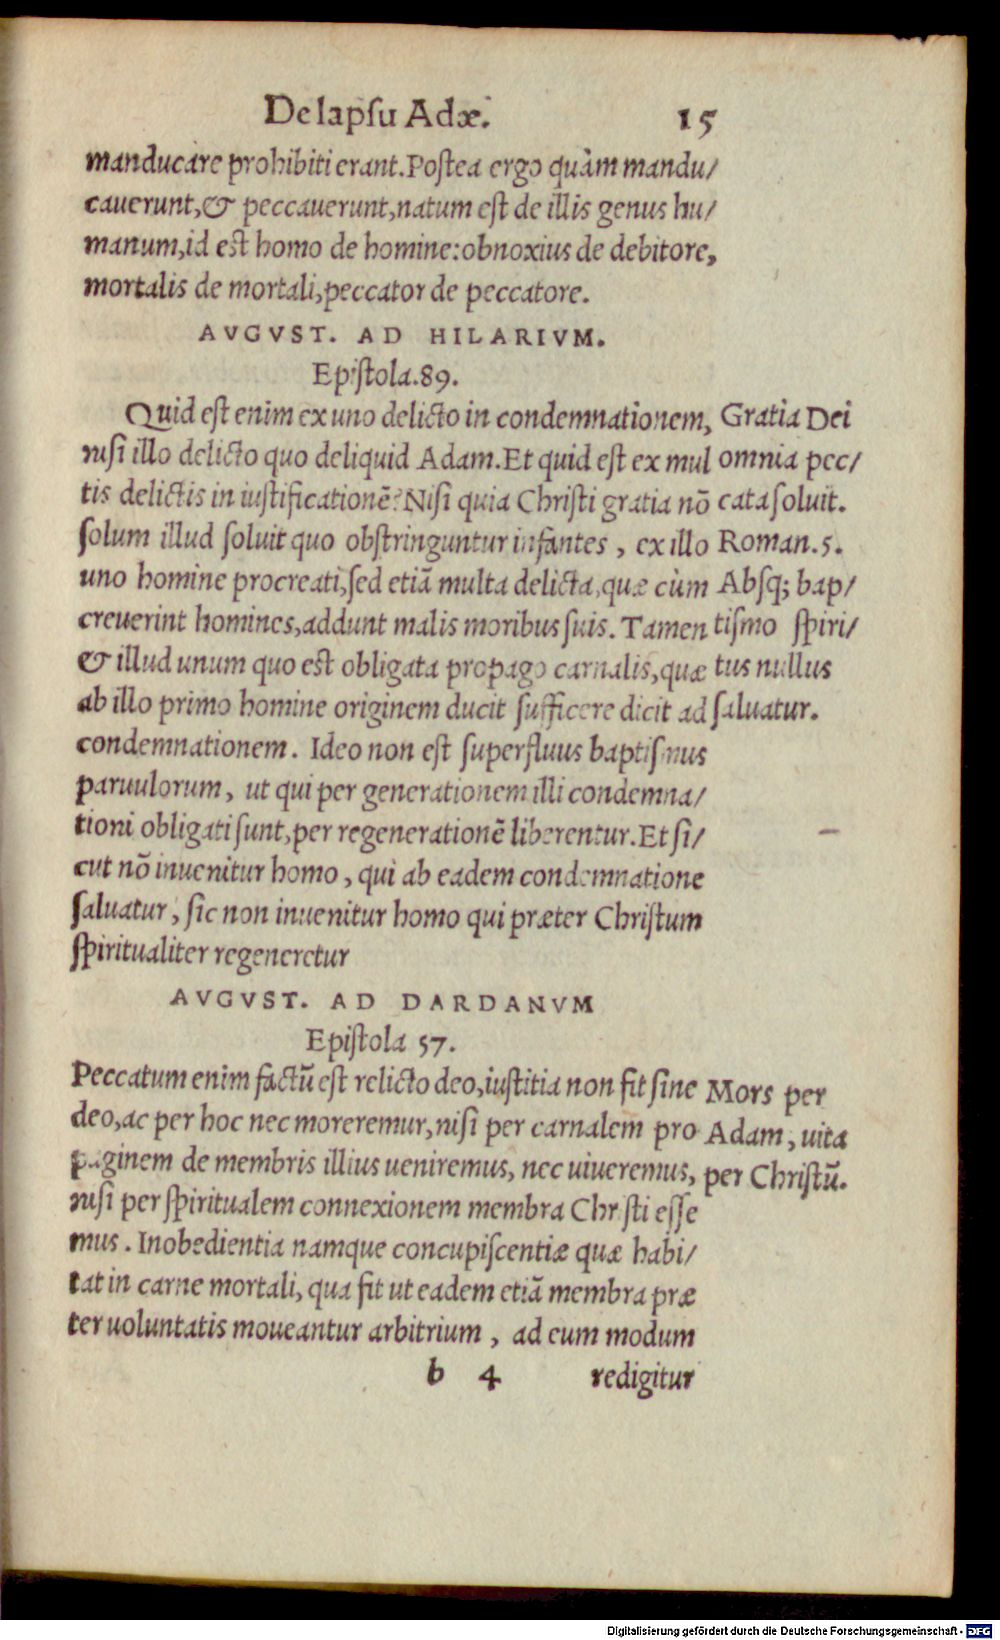 De lapsu Adæ. 15
manducare prohibiti erant. Postea ergo quàm mandu/
cauerunt, & peccauerunt, natum est de illis genus hu/
manum, id est homo de homine: obnoxius de debitore,
mortalis de mortali, peccator de peccatore.
AVGVST. AD HILARIVM.
Epistola. 89.
Quid est enim ex uno delicto in condemnationem,
nisi illo delicto quo deliquid Adam. Et quid est ex mul
tis delictis in iustificationē? Nisi quia Christi gratia nō
solum illud soluit quo obstringuntur infantes, ex illo
uno homine procreati, sed etiā multa delicta, quæ cùm
creuerint homines, addunt malis moribus suis. Tamen
& illud unum quo est obligata propago carnalis, quæ
ab illo primo homine originem ducit sufficere dicit ad
condemnationem. Ideo non est superfluus baptismus
paruulorum, ut qui per generationem illi condemna/
tioni obligati sunt, per regenerationē liberentur. Et si/
cut nō inuenitur homo, qui ab eadem condemnatione
saluatur, sic non inuenitur homo qui præter Christum
spiritualiter regeneretur
Gratia Dei
omnia pec/
cata soluit.
Roman. 5.
Absq; bap/
tismo spiri/
tus nullus
saluatur.
AVGVST. AD DARDANVM
Epistola 57.
Peccatum enim factū est relicto deo, iustitia non fit sine
deo, ac per hoc nec moreremur, nisi per carnalem pro
paginem de membris illius ueniremus, nec uiueremus,
nisi per spiritualem connexionem membra Christi esse
mus. Inobedientia namque concupiscentiæ quæ habi/
tat in carne mortali, qua fit ut eadem etiā membra præ
ter uoluntatis moueantur arbitrium, ad eum modum
Mors per
Adam, uita
per Christū.
b 4 redigitur
Digitalisierung gefördert durch die Deutsche Forschungsgemeinschaft - DFG